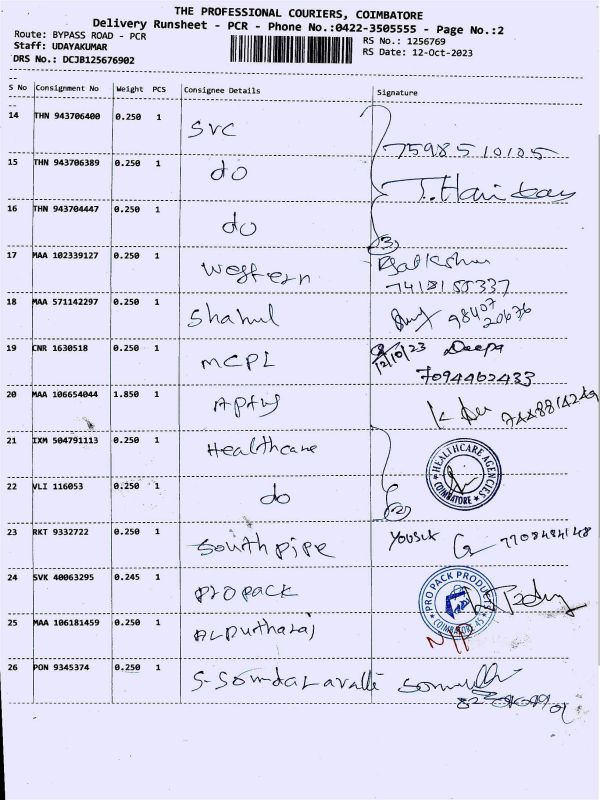 THE PROFESSIONAL COURIERS, COIMBATORE
Delivery Runsheet - PCR - Phone No.:0422-3505555 - Page No.:2
Route: BYPASS ROAD - PCR
RS No.: 1256769
Staff: UDAYAKUMAR
RS Date: 12-Oct-2023
DRS No.: DCJB125676902
S No Consignment No Weight PCS Consignee Details Signature
14 THN 943706400 0.250 1 SVC
7598510105
15 THN 943706389 0.250 1 do
16 THN 943704447 0.250 1 do
(3)
17 MAA 102339127 0.250 1 western
7418155337
18 MAA 571142297 0.250 1 Shahul
98407
20676
19 CNR 1630518 0.250 1 MCPL
12/10/23 Deepa
7094462433
20 MAA 106654044 1.850 1
21 IXM 504791113 0.250 1 Healthcare
HEALTHCARE AGENCIES
COIMBATORE
22 VLI 116053 0.250 1 do
(2)
23 RKT 9332722 0.250 1 southpipe
24 SVK 40063295 0.245 1 propack
PRO PACK PRODUCTS
COIMBATORE-45
25 MAA 106181459 0.250 1
26 PON 9345374 0.250 1